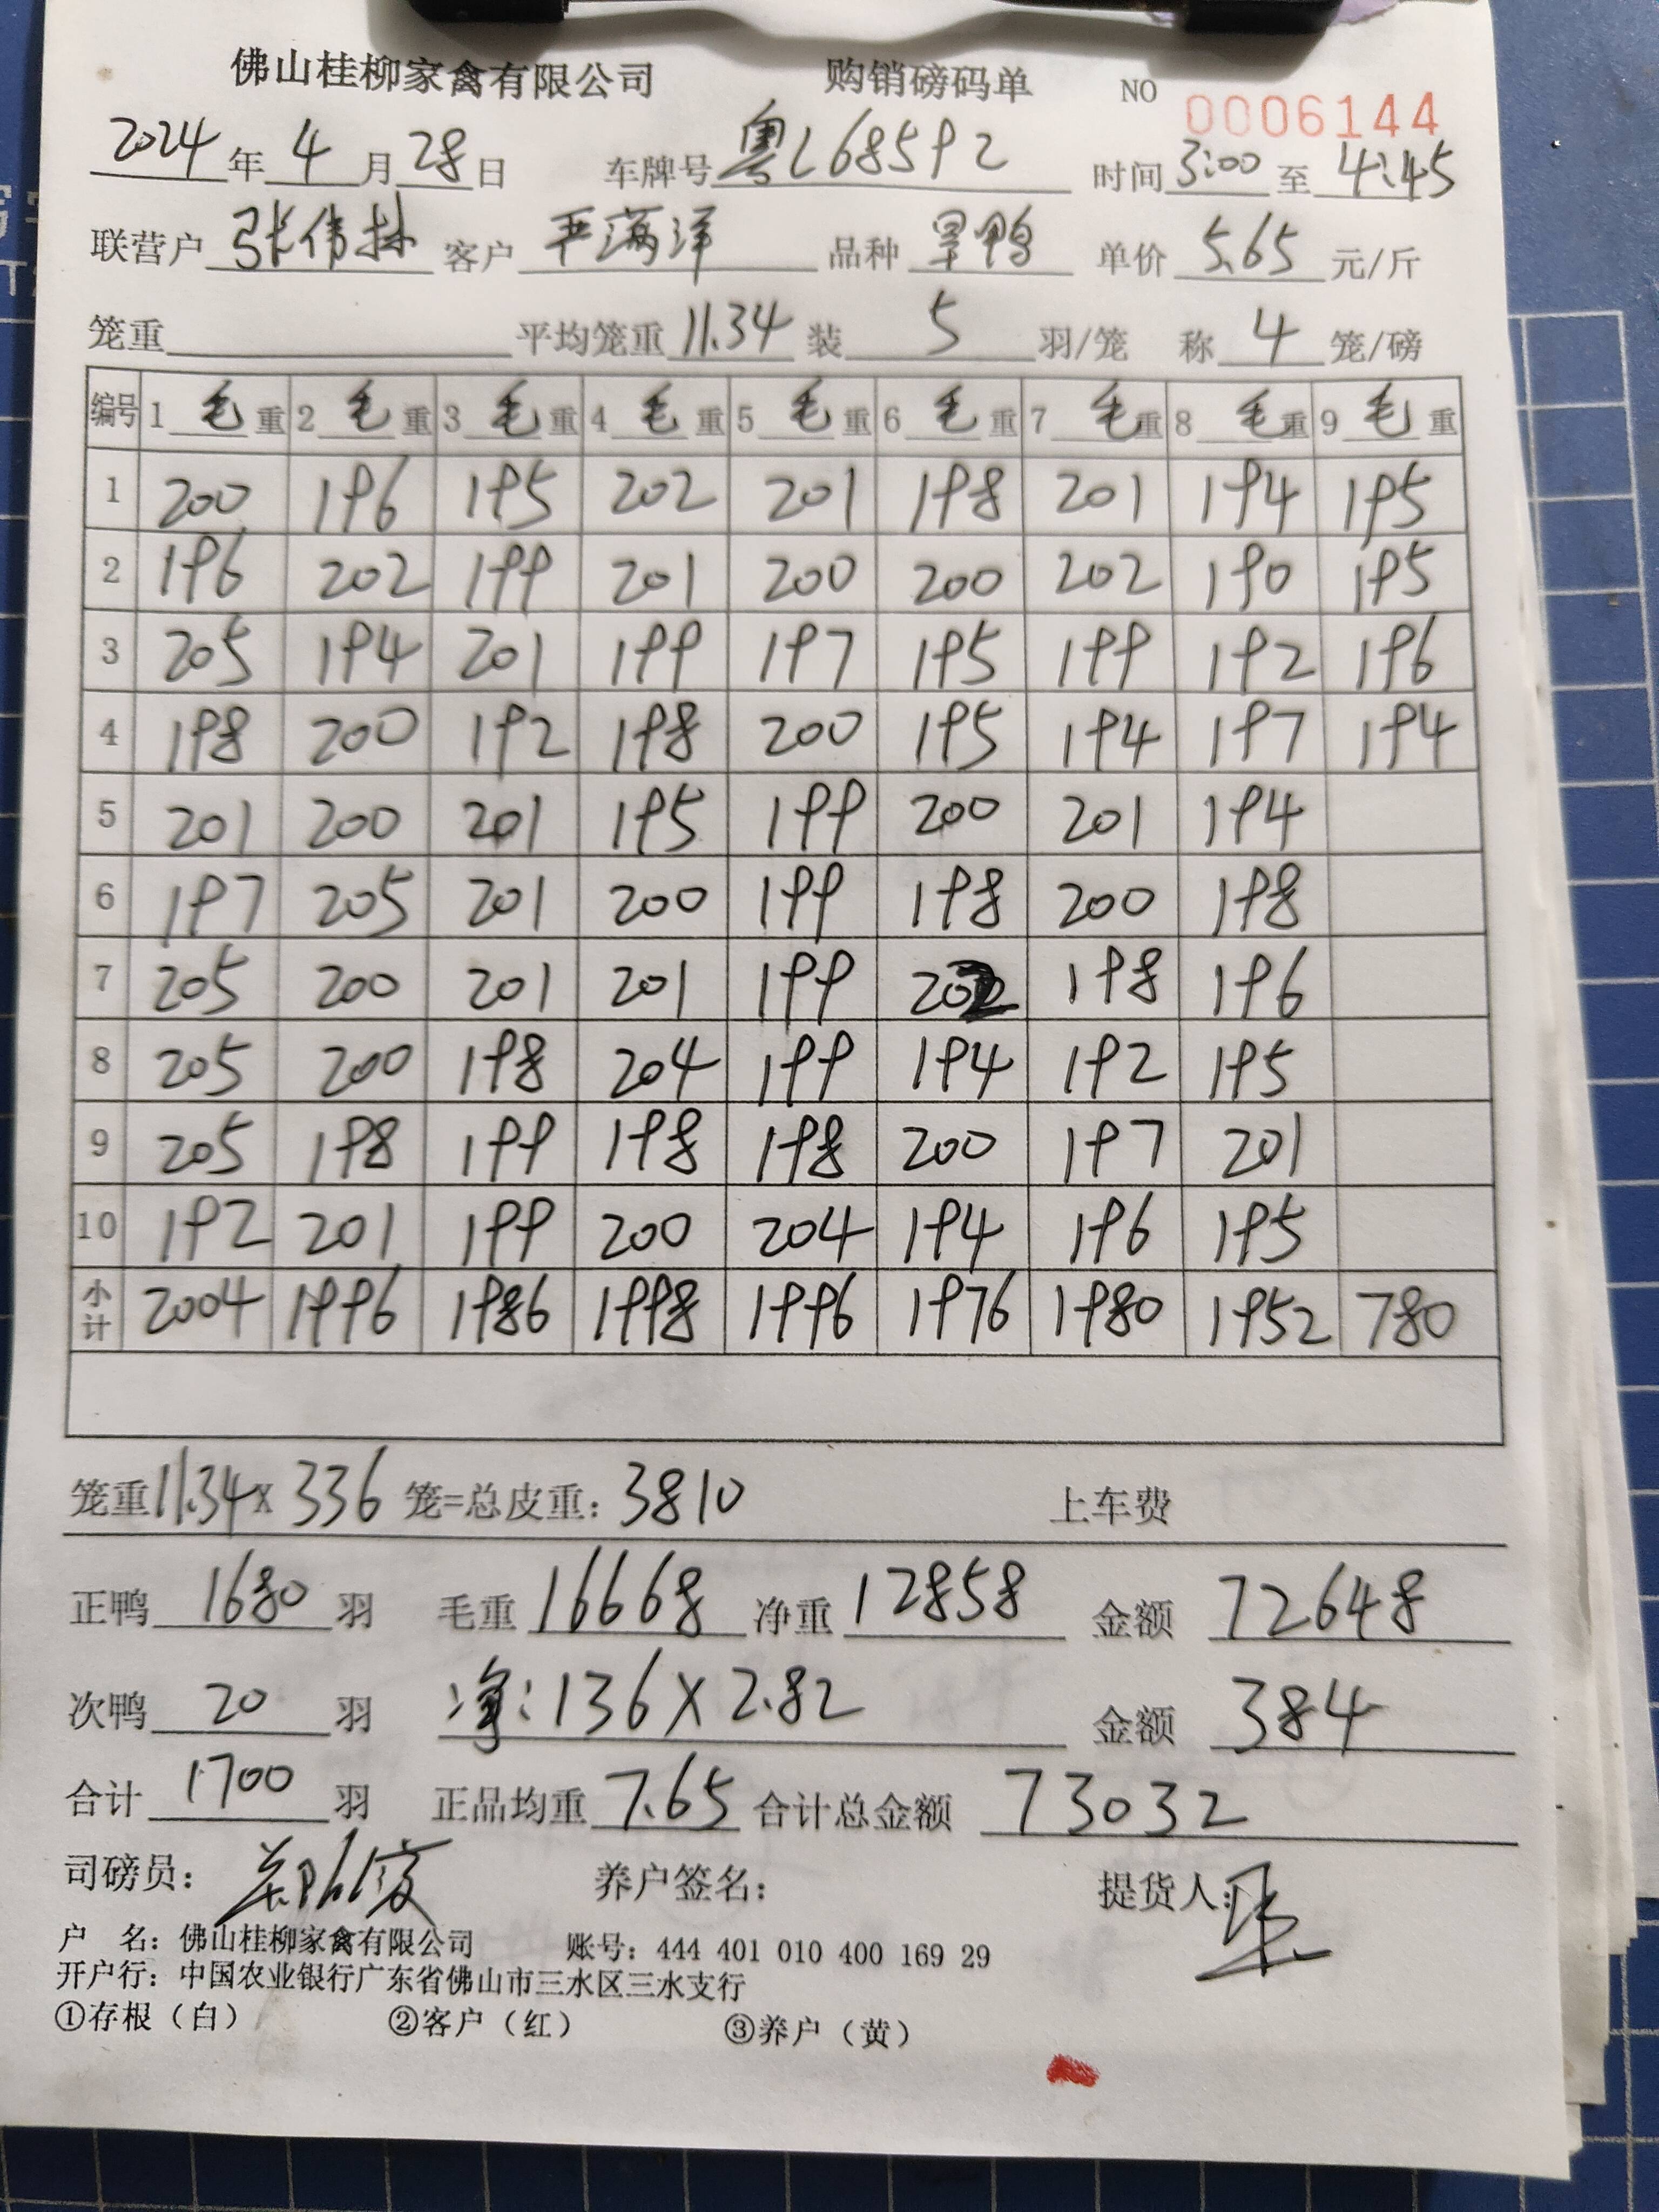 佛山桂柳家禽有限公司 购销磅码单 NO 0006144
2024年4月28日 车牌号 粤L68592 时间 3:00 至 4:45
联营户 张伟林 客户 严满洋 品种 旱鸭 单价 5.65 元/斤
笼重 平均笼重 11.34 装 5 羽/笼 称 4 笼/磅
编号 1 毛重 2 毛重 3 毛重 4 毛重 5 毛重 6 毛重 7 毛重 8 毛重 9 毛重
1 200 196 195 202 201 198 201 194 195
2 196 202 199 201 200 200 202 190 195
3 205 194 201 199 197 195 199 192 196
4 198 200 192 198 200 195 194 197 194
5 201 200 201 195 199 200 201 194
6 197 205 201 200 199 198 200 198
7 205 200 201 201 199 202 198 196
8 205 200 198 204 199 194 192 195
9 205 198 199 198 198 200 197 201
10 192 201 199 200 204 194 196 195
小计 2004 1996 1986 1998 1996 1976 1980 1952 780
笼重 11.34 x 336 笼=总皮重: 3810 上车费
正鸭 1680 羽 毛重 16668 净重 12858 金额 72648
次鸭 20 羽 净:136 x 2.82 金额 384
合计 1700 羽 正品均重 7.65 合计总金额 73032
司磅员: 养户签名: 提货人:
户 名: 佛山桂柳家禽有限公司 账号: 444 401 010 400 169 29
开户行: 中国农业银行广东省佛山市三水区三水支行
①存根（白） ②客户（红） ③养户（黄）